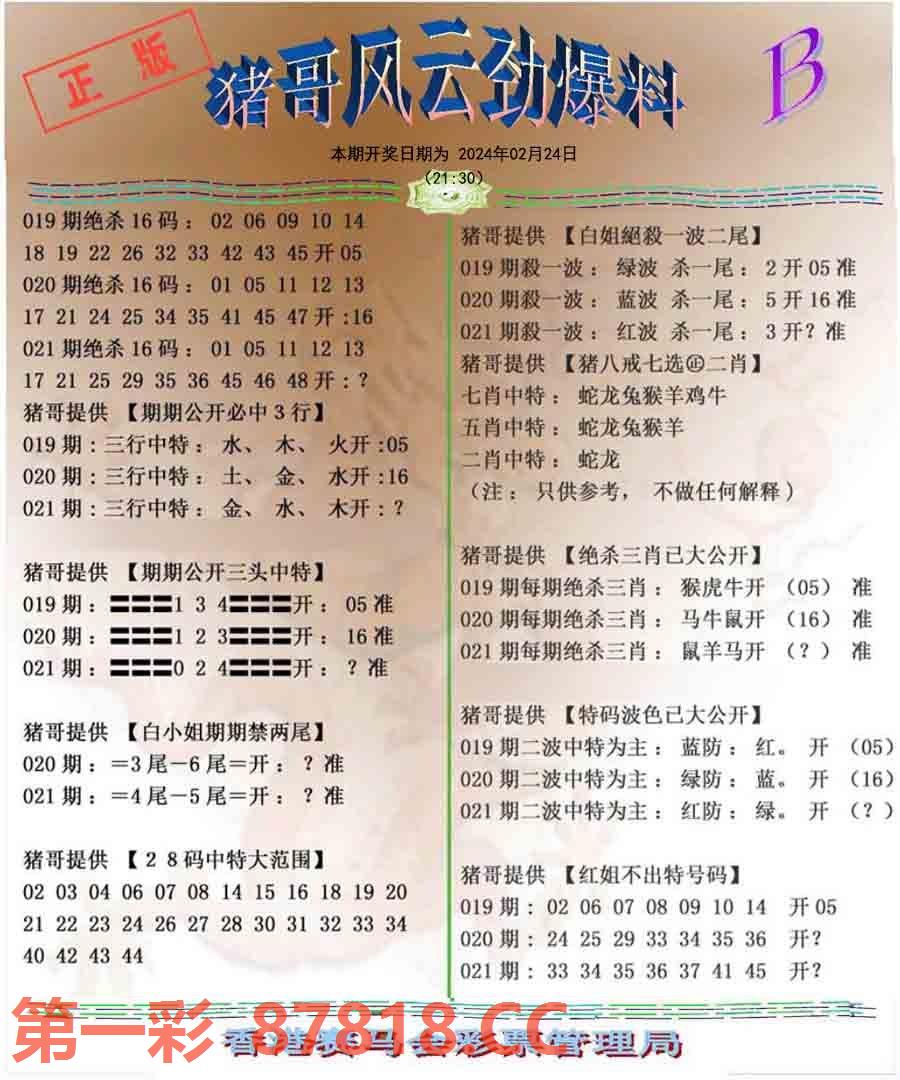 正版
猪哥风云劲爆料
B
本期开奖日期为 2024年02月24日
(21:30)
019期绝杀16码： 02 06 09 10 14
18 19 22 26 32 33 42 43 45开05
020期绝杀16码： 01 05 11 12 13
17 21 24 25 34 35 41 45 47开:16
021期绝杀16码： 01 05 11 12 13
17 21 25 29 35 36 45 46 48开:？
猪哥提供 【期期公开必中3行】
019期:三行中特： 水、 木、 火开:05
020期:三行中特： 土、 金、 水开:16
021期:三行中特： 金、 水、 木开:？
猪哥提供 【期期公开三头中特】
019期:〓〓〓1 3 4〓〓〓开： 05准
020期:〓〓〓1 2 3〓〓〓开： 16准
021期:〓〓〓0 2 4〓〓〓开： ？准
猪哥提供 【白小姐期期禁两尾】
020期:＝3尾－6尾＝开： ？准
021期:＝4尾－5尾＝开： ？准
猪哥提供 【２８码中特大范围】
02 03 04 06 07 08 14 15 16 18 19 20
21 22 23 24 26 27 28 30 31 32 33 34
40 42 43 44
猪哥提供 【白姐絕殺一波二尾】
019期殺一波： 绿波 杀一尾：2开05准
020期殺一波： 蓝波 杀一尾：5开16准
021期殺一波： 红波 杀一尾：3开？准
猪哥提供 【猪八戒七选㊣二肖】
七肖中特： 蛇龙兔猴羊鸡牛
五肖中特： 蛇龙兔猴羊
二肖中特： 蛇龙
（注： 只供参考， 不做任何解释）
猪哥提供 【绝杀三肖已大公开】
019期每期绝杀三肖： 猴虎牛开 （05） 准
020期每期绝杀三肖： 马牛鼠开 （16） 准
021期每期绝杀三肖： 鼠羊马开 （？） 准
猪哥提供 【特码波色已大公开】
019期二波中特为主： 蓝防：红。 开 （05）
020期二波中特为主： 绿防：蓝。 开 （16）
021期二波中特为主： 红防：绿。 开 （？）
猪哥提供 【红姐不出特号码】
019期：02 06 07 08 09 10 14 开05
020期：24 25 29 33 34 35 36 开？
021期：33 34 35 36 37 41 45 开？
第一彩 87818.CC
香港赛马会彩票管理局